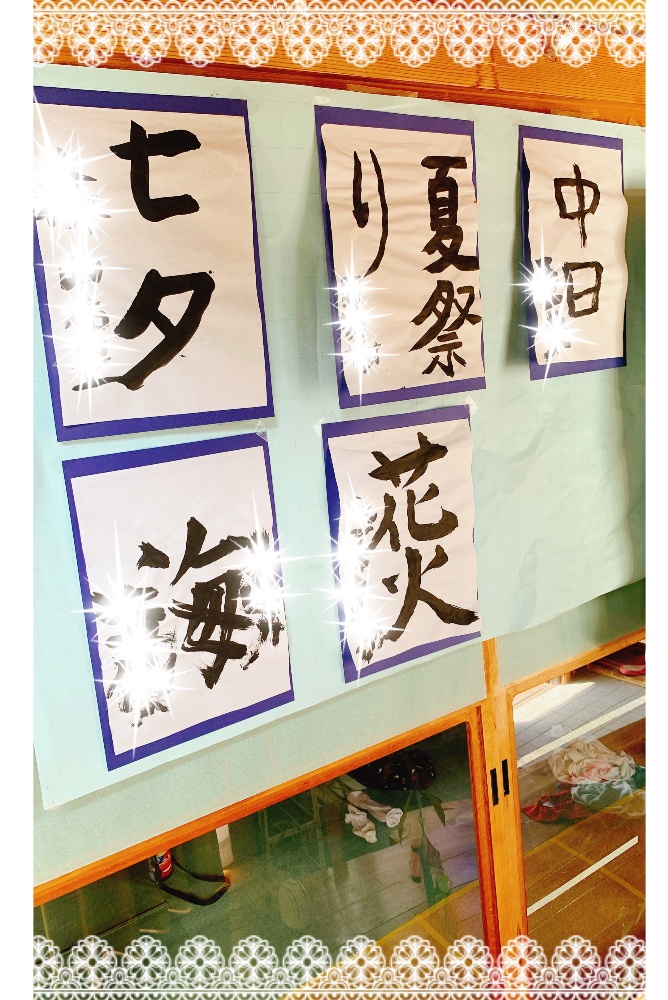 七夕
夏祭
り
中日
海
花火